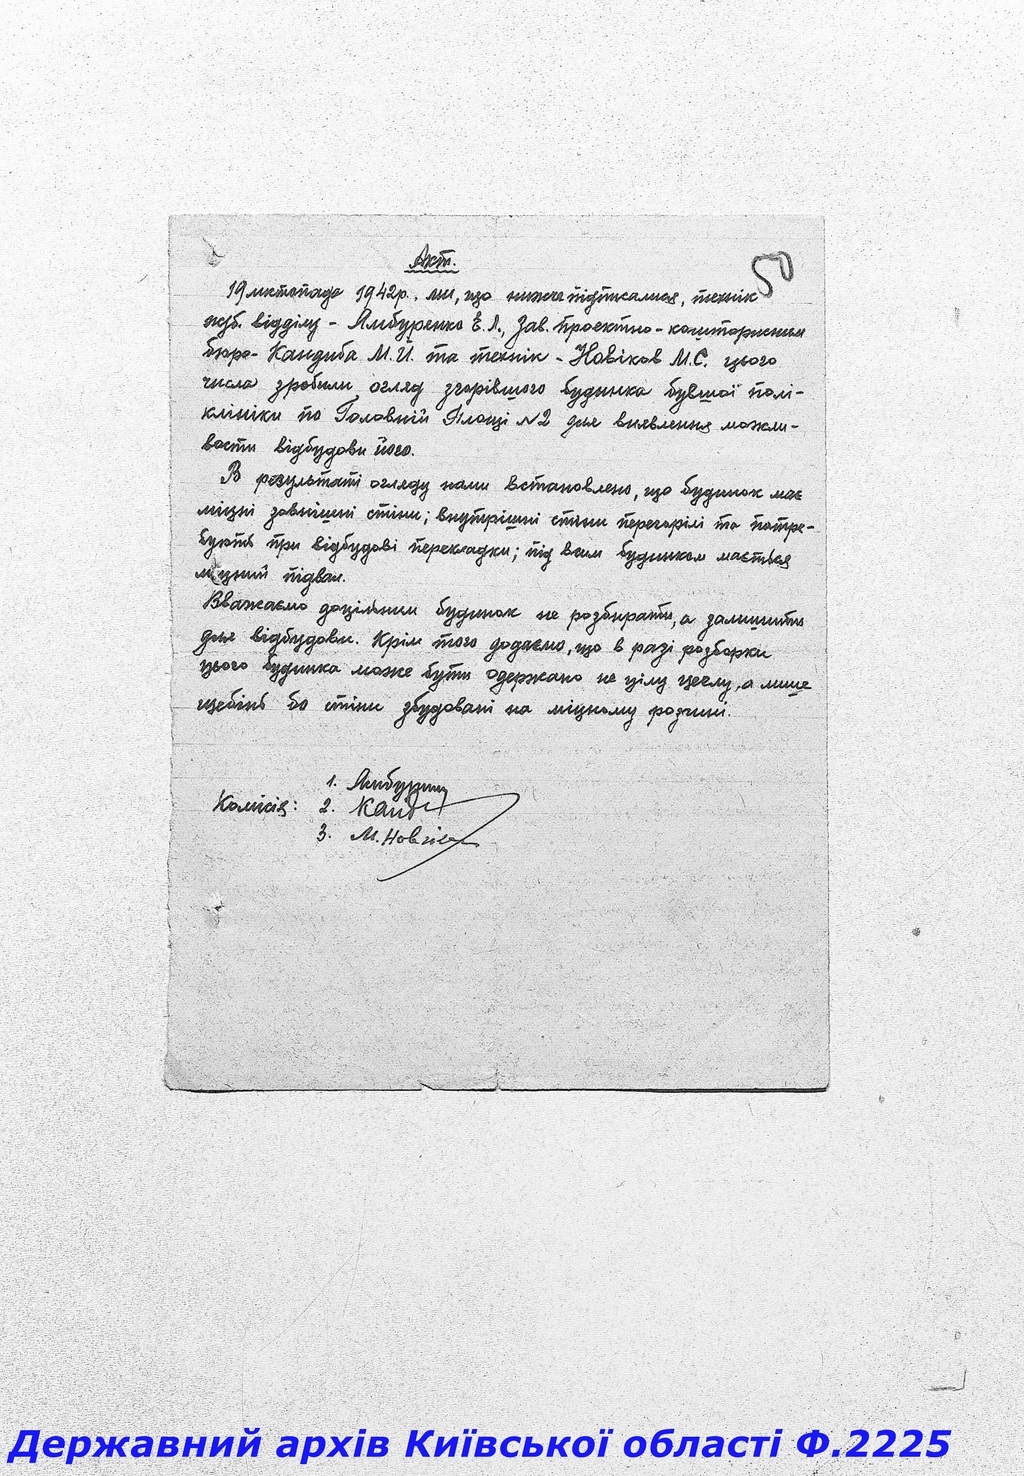 Акт.
50
19 листопада 1942р. ми, що нижче підписалися, технік
жр. відділу - Ямбуренко Е.Л., Зав. проектно-кошторисним
бюро - Кандиба М.Й. та технік - Новіков М.С. цього
числа зробили огляд згорівшого будинка бувшої полі-
клініки по Головній Площі №2 для виявлення можли-
вости відбудови його.
В результаті огляду нами встановлено, що будинок має
міцні зовнішні стіни; внутрішні стіни перегорілі та потре-
бують при відбудові перекладки; під всим будинком мається
міцний підвал.
Вважаємо доцільним будинок не розбирати, а залишити
для відбудови. Крім того додаємо, що в разі розборки
цього будинка може бути одержано не цілу цеглу, а лише
щебінь бо стіни збудовані на міцному розчині.
Комісія:
1. Ямбурен
2. Канд
3. М. Новіков
Державний архів Київської області Ф.2225